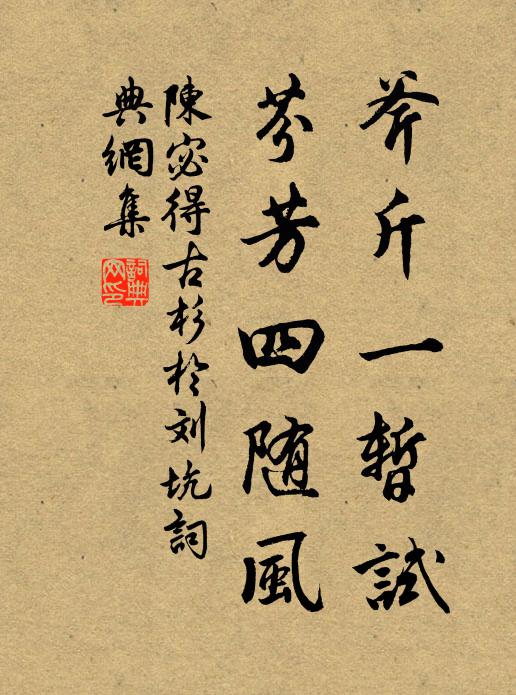 斧斤一暫試
芬芳四随風
陳宓得古杉於刘坑詞
典網集
詞典
网印